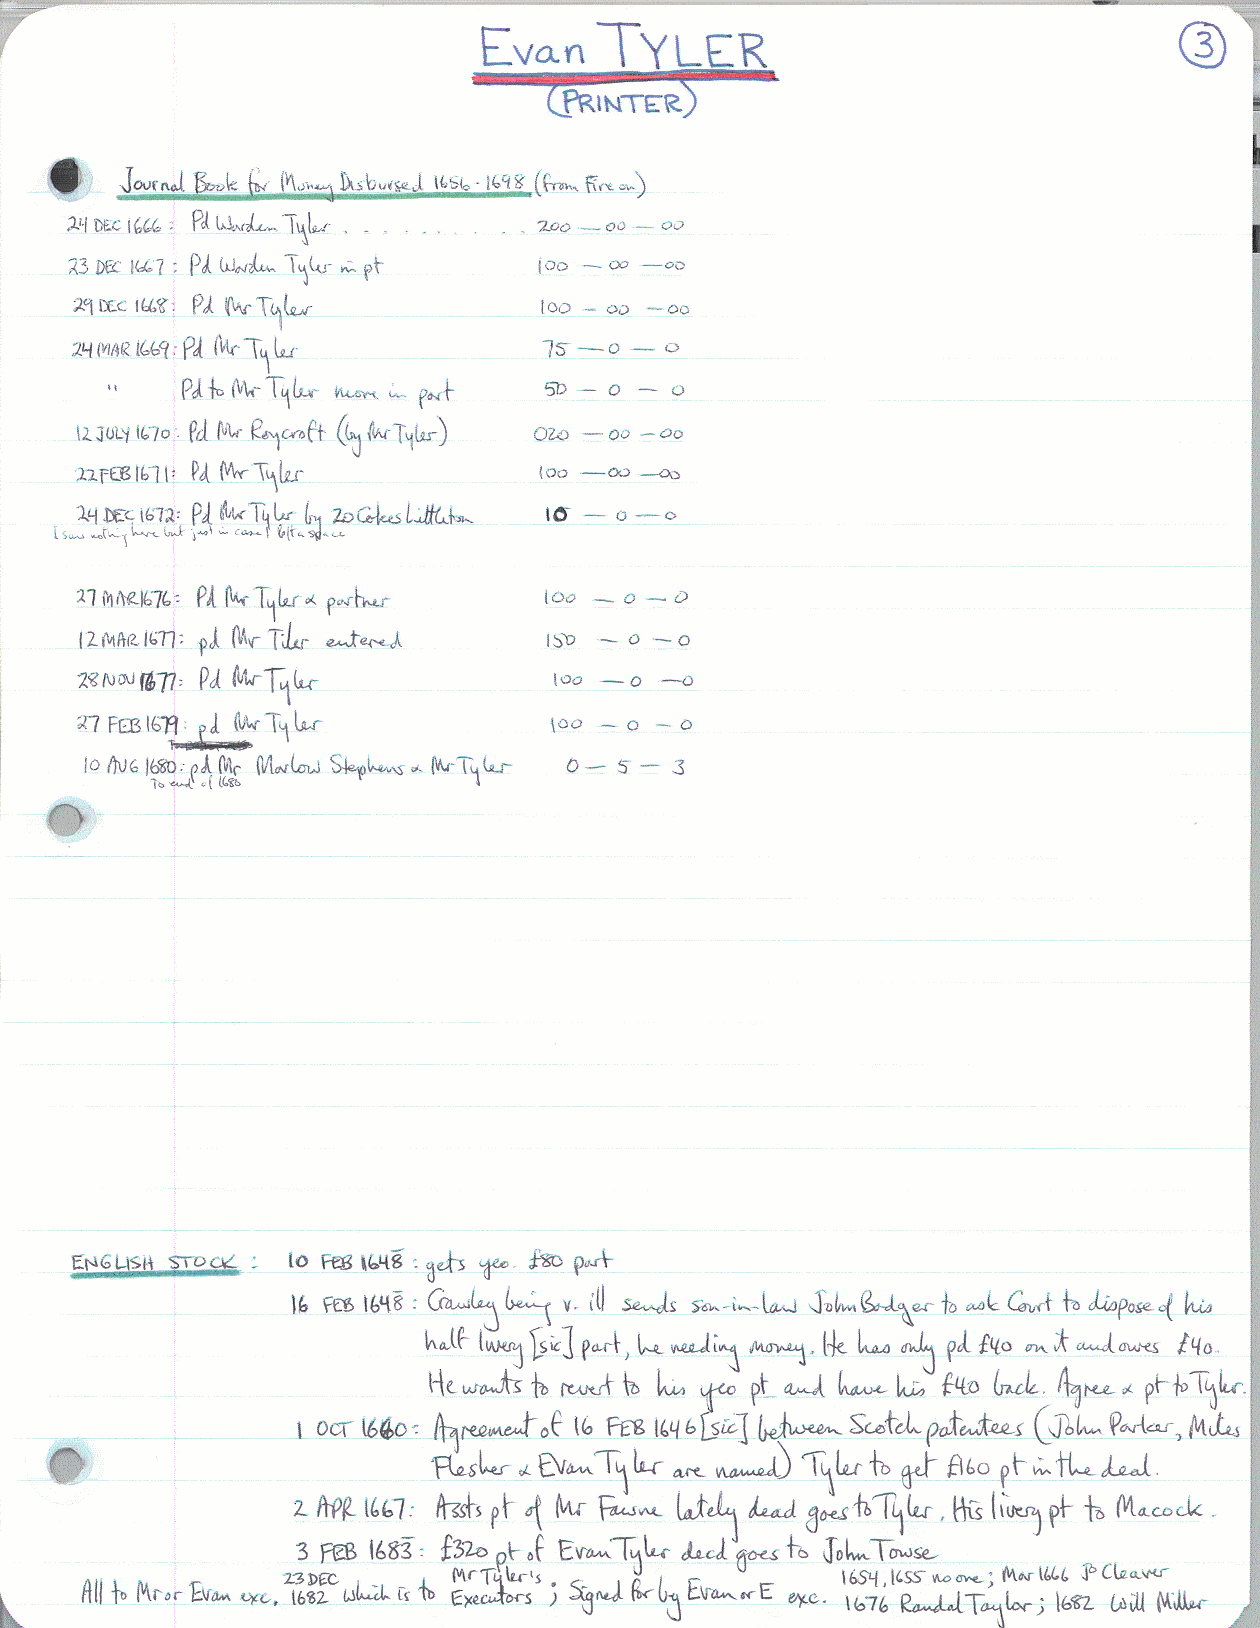 Evan TYLER
3
(PRINTER)
Journal Book for Money Disbursed 1656-1698 (from Fire on)
24 DEC 1666: Pd Warden Tyler . . . . . . . . . . 200 — 00 — 00
23 DEC 1667: Pd Warden Tyler in pt 100 — 00 — 00
29 DEC 1668: Pd Mr Tyler 100 — 00 — 00
24 MAR 1669: Pd Mr Tyler 75 — 0 — 0
" Pd to Mr Tyler more in part 50 — 0 — 0
12 JULY 1670: Pd Mr Roycroft (by Mr Tyler) 020 — 00 — 00
22 FEB 1671: Pd Mr Tyler 100 — 00 — 00
24 DEC 1672: Pd Mr Tyler by 20 Cokes Littleton 10 — 0 — 0
I saw nothing here but just in case I left a space
27 MAR 1676: Pd Mr Tyler & partner 100 — 0 — 0
12 MAR 1677: pd Mr Tiler entered 150 — 0 — 0
28 NOV 1677: Pd Mr Tyler 100 — 0 — 0
27 FEB 1679: pd Mr Tyler 100 — 0 — 0
10 AUG 1680: pd Mr Marlow Stephens & Mr Tyler 0 — 5 — 3
To end of 1680
ENGLISH STOCK: 10 FEB 1648: gets yeo. £80 part
16 FEB 1648: Crawley being v. ill sends son-in-law John Badger to ask Court to dispose of his
half livery [sic] part, he needing money. He has only pd £40 on it and owes £40.
He wants to revert to his yeo pt and have his £40 back. Agree & pt to Tyler.
1 OCT 1660: Agreement of 16 FEB 1646 [sic] between Scotch patentees (John Parker, Miles
Flesher & Evan Tyler are named) Tyler to get £160 pt in the deal.
2 APR 1667: Assts pt of Mr Fawne lately dead goes to Tyler. His livery pt to Macock.
3 FEB 1683: £320 pt of Evan Tyler decd goes to John Towse
All to Mr or Evan exc. 23 DEC 1682 which is to Mr Tyler's Executors; Signed for by Evan or E exc. 1654, 1655 no one; Mar 1666 Jo Cleaver
1676 Randal Taylor; 1682 Will Miller